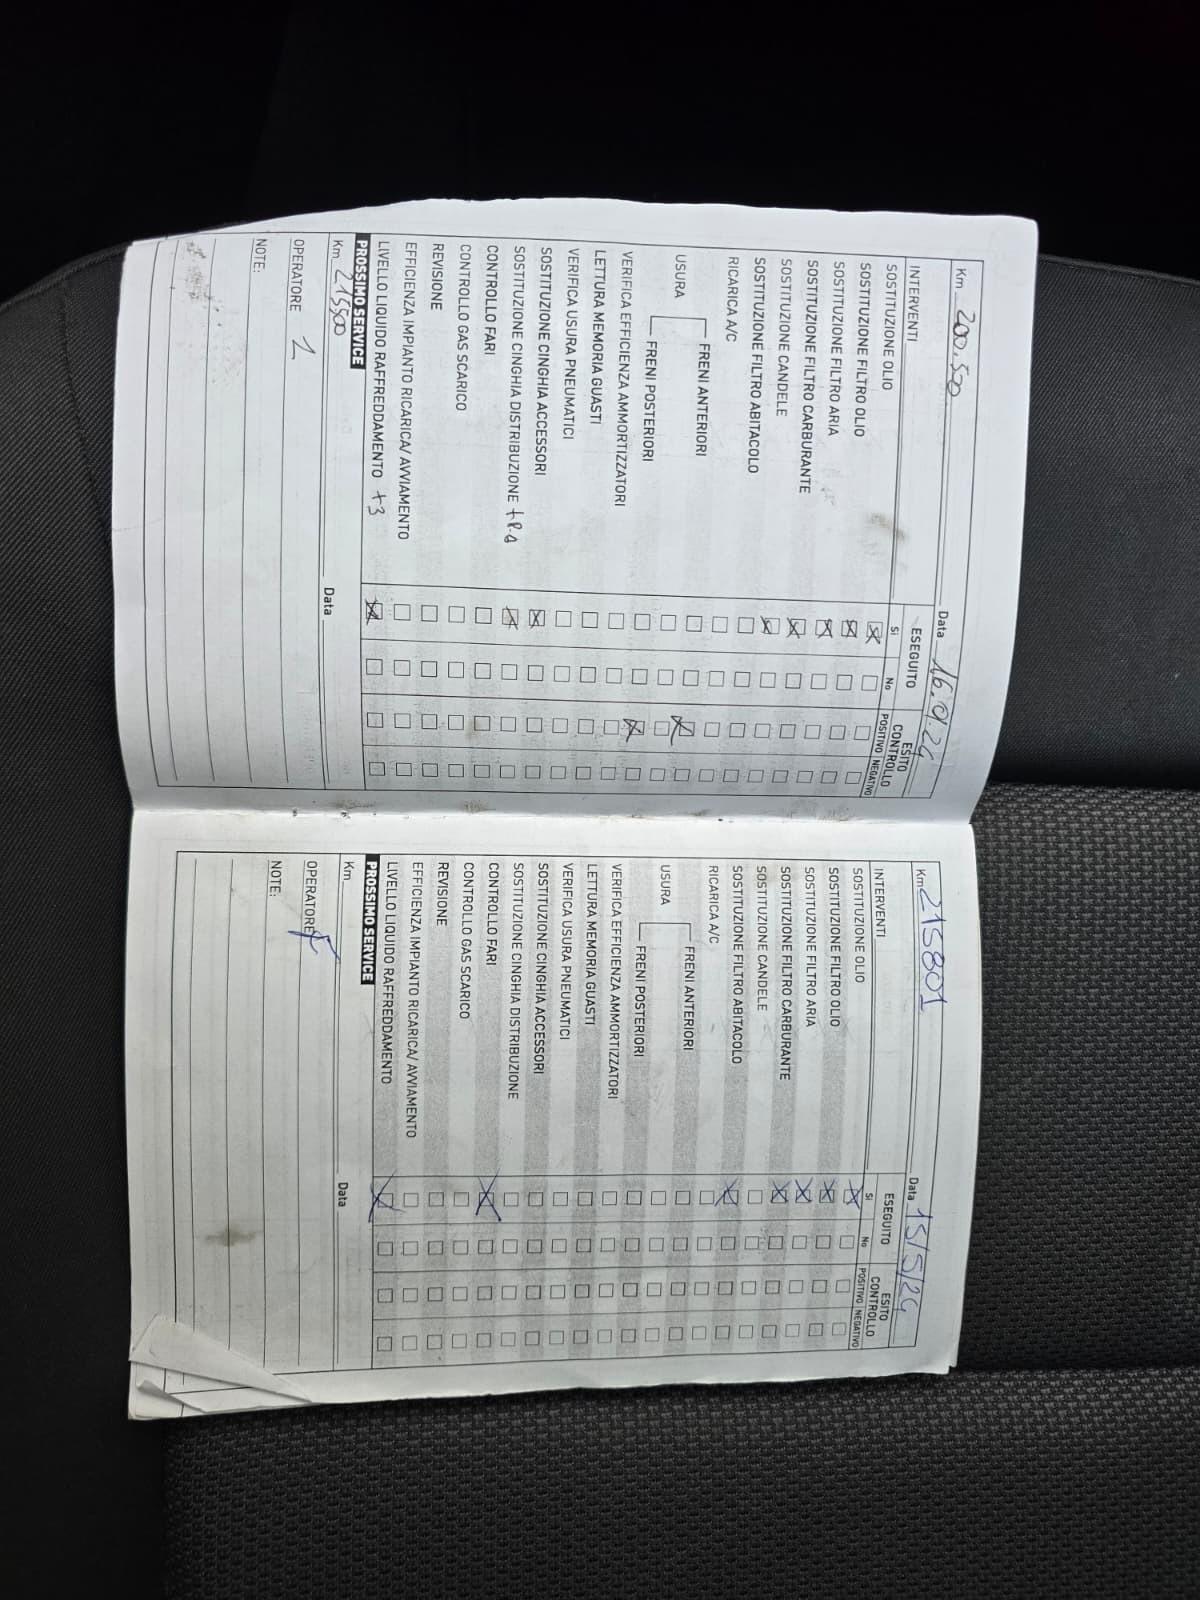 Km 200.500 Data 16.01.24
INTERVENTI ESEGUITO ESITO CONTROLLO
SI No POSITIVO NEGATIVO
SOSTITUZIONE OLIO
SOSTITUZIONE FILTRO OLIO
SOSTITUZIONE FILTRO ARIA
SOSTITUZIONE FILTRO CARBURANTE
SOSTITUZIONE CANDELE
SOSTITUZIONE FILTRO ABITACOLO
RICARICA A/C
FRENI ANTERIORI
USURA
FRENI POSTERIORI
VERIFICA EFFICIENZA AMMORTIZZATORI
LETTURA MEMORIA GUASTI
VERIFICA USURA PNEUMATICI
SOSTITUZIONE CINGHIA ACCESSORI
SOSTITUZIONE CINGHIA DISTRIBUZIONE
CONTROLLO FARI
CONTROLLO GAS SCARICO
REVISIONE
EFFICIENZA IMPIANTO RICARICA/ AVVIAMENTO
LIVELLO LIQUIDO RAFFREDDAMENTO +3
PROSSIMO SERVICE
Km 215500 Data
OPERATORE 1
NOTE:
Km 215801 Data 15/5/24
INTERVENTI ESEGUITO ESITO CONTROLLO
SI No POSITIVO NEGATIVO
SOSTITUZIONE OLIO
SOSTITUZIONE FILTRO OLIO
SOSTITUZIONE FILTRO ARIA
SOSTITUZIONE FILTRO CARBURANTE
SOSTITUZIONE CANDELE
SOSTITUZIONE FILTRO ABITACOLO
RICARICA A/C
FRENI ANTERIORI
USURA
FRENI POSTERIORI
VERIFICA EFFICIENZA AMMORTIZZATORI
LETTURA MEMORIA GUASTI
VERIFICA USURA PNEUMATICI
SOSTITUZIONE CINGHIA ACCESSORI
SOSTITUZIONE CINGHIA DISTRIBUZIONE
CONTROLLO FARI
CONTROLLO GAS SCARICO
REVISIONE
EFFICIENZA IMPIANTO RICARICA/ AVVIAMENTO
LIVELLO LIQUIDO RAFFREDDAMENTO
PROSSIMO SERVICE
Km Data
OPERATORE
NOTE: